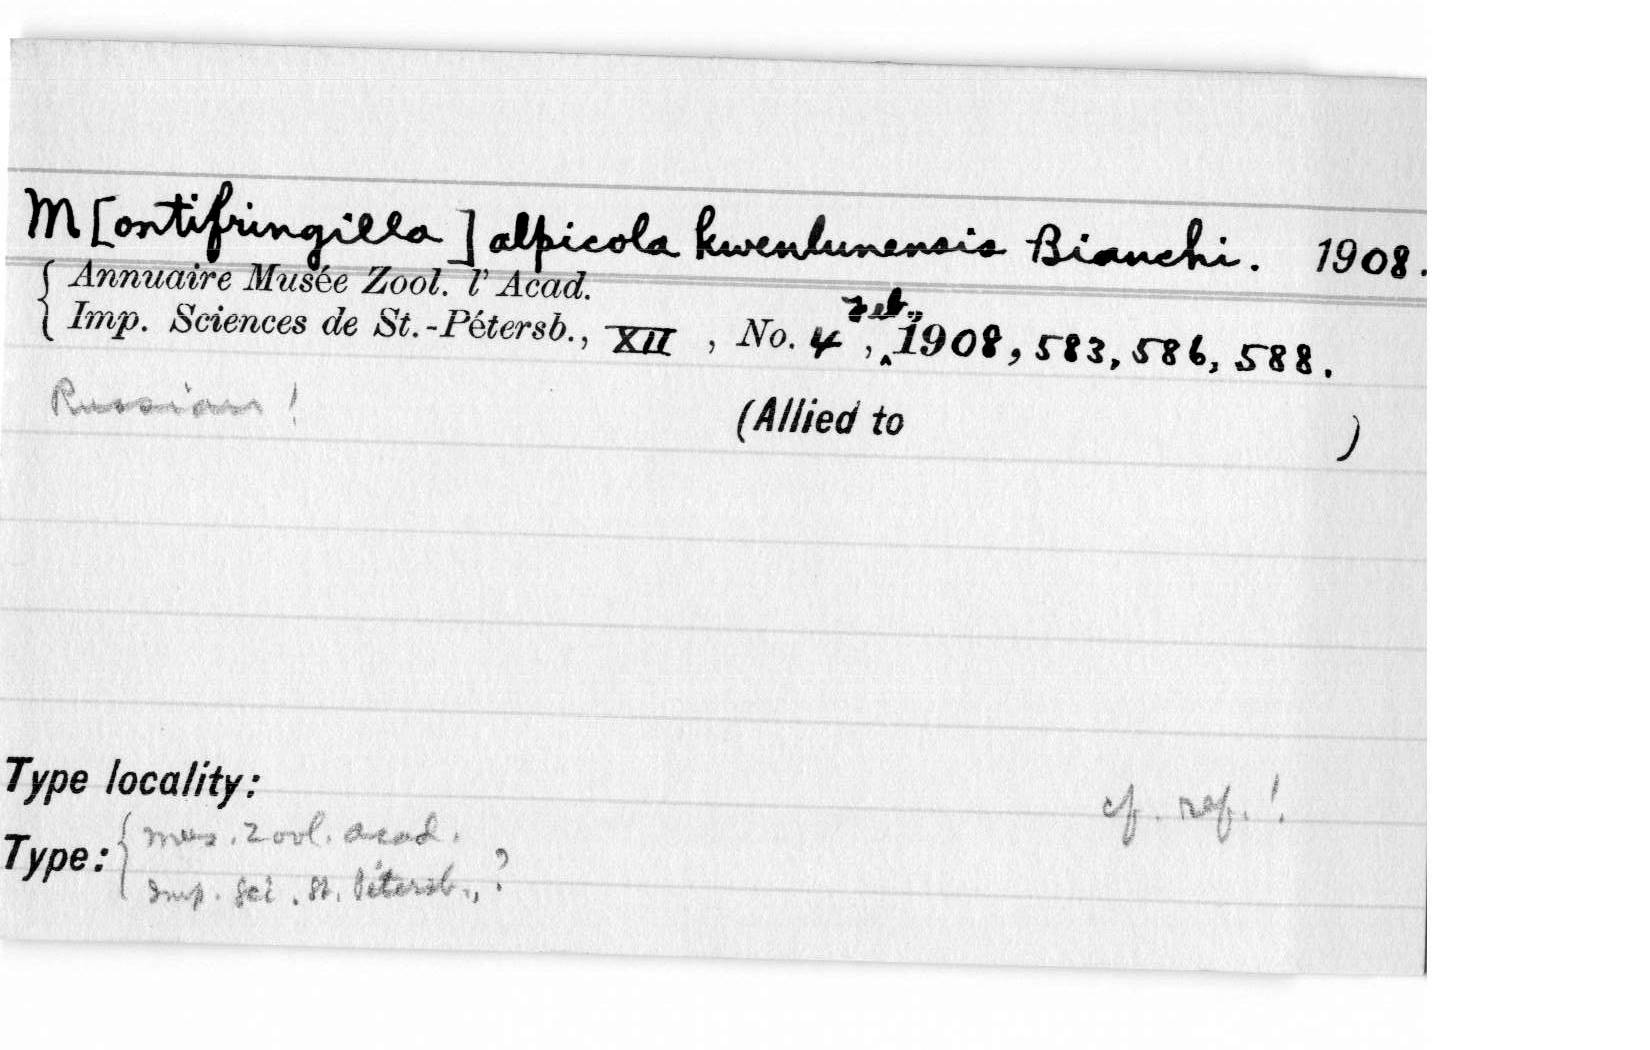 M[ontifringilla] alpicola kwenlunensis Bianchi. 1908.
Annuaire Musée Zool. l'Acad.
Imp. Sciences de St.-Pétersb., XII, No. 4, Feb., 1908, 583, 586, 588.
Russian!
(Allied to )
Type locality:
cf. ref.!
Type: Mus. Zool. Acad.
Imp. Sci. St. Pétersb., ?